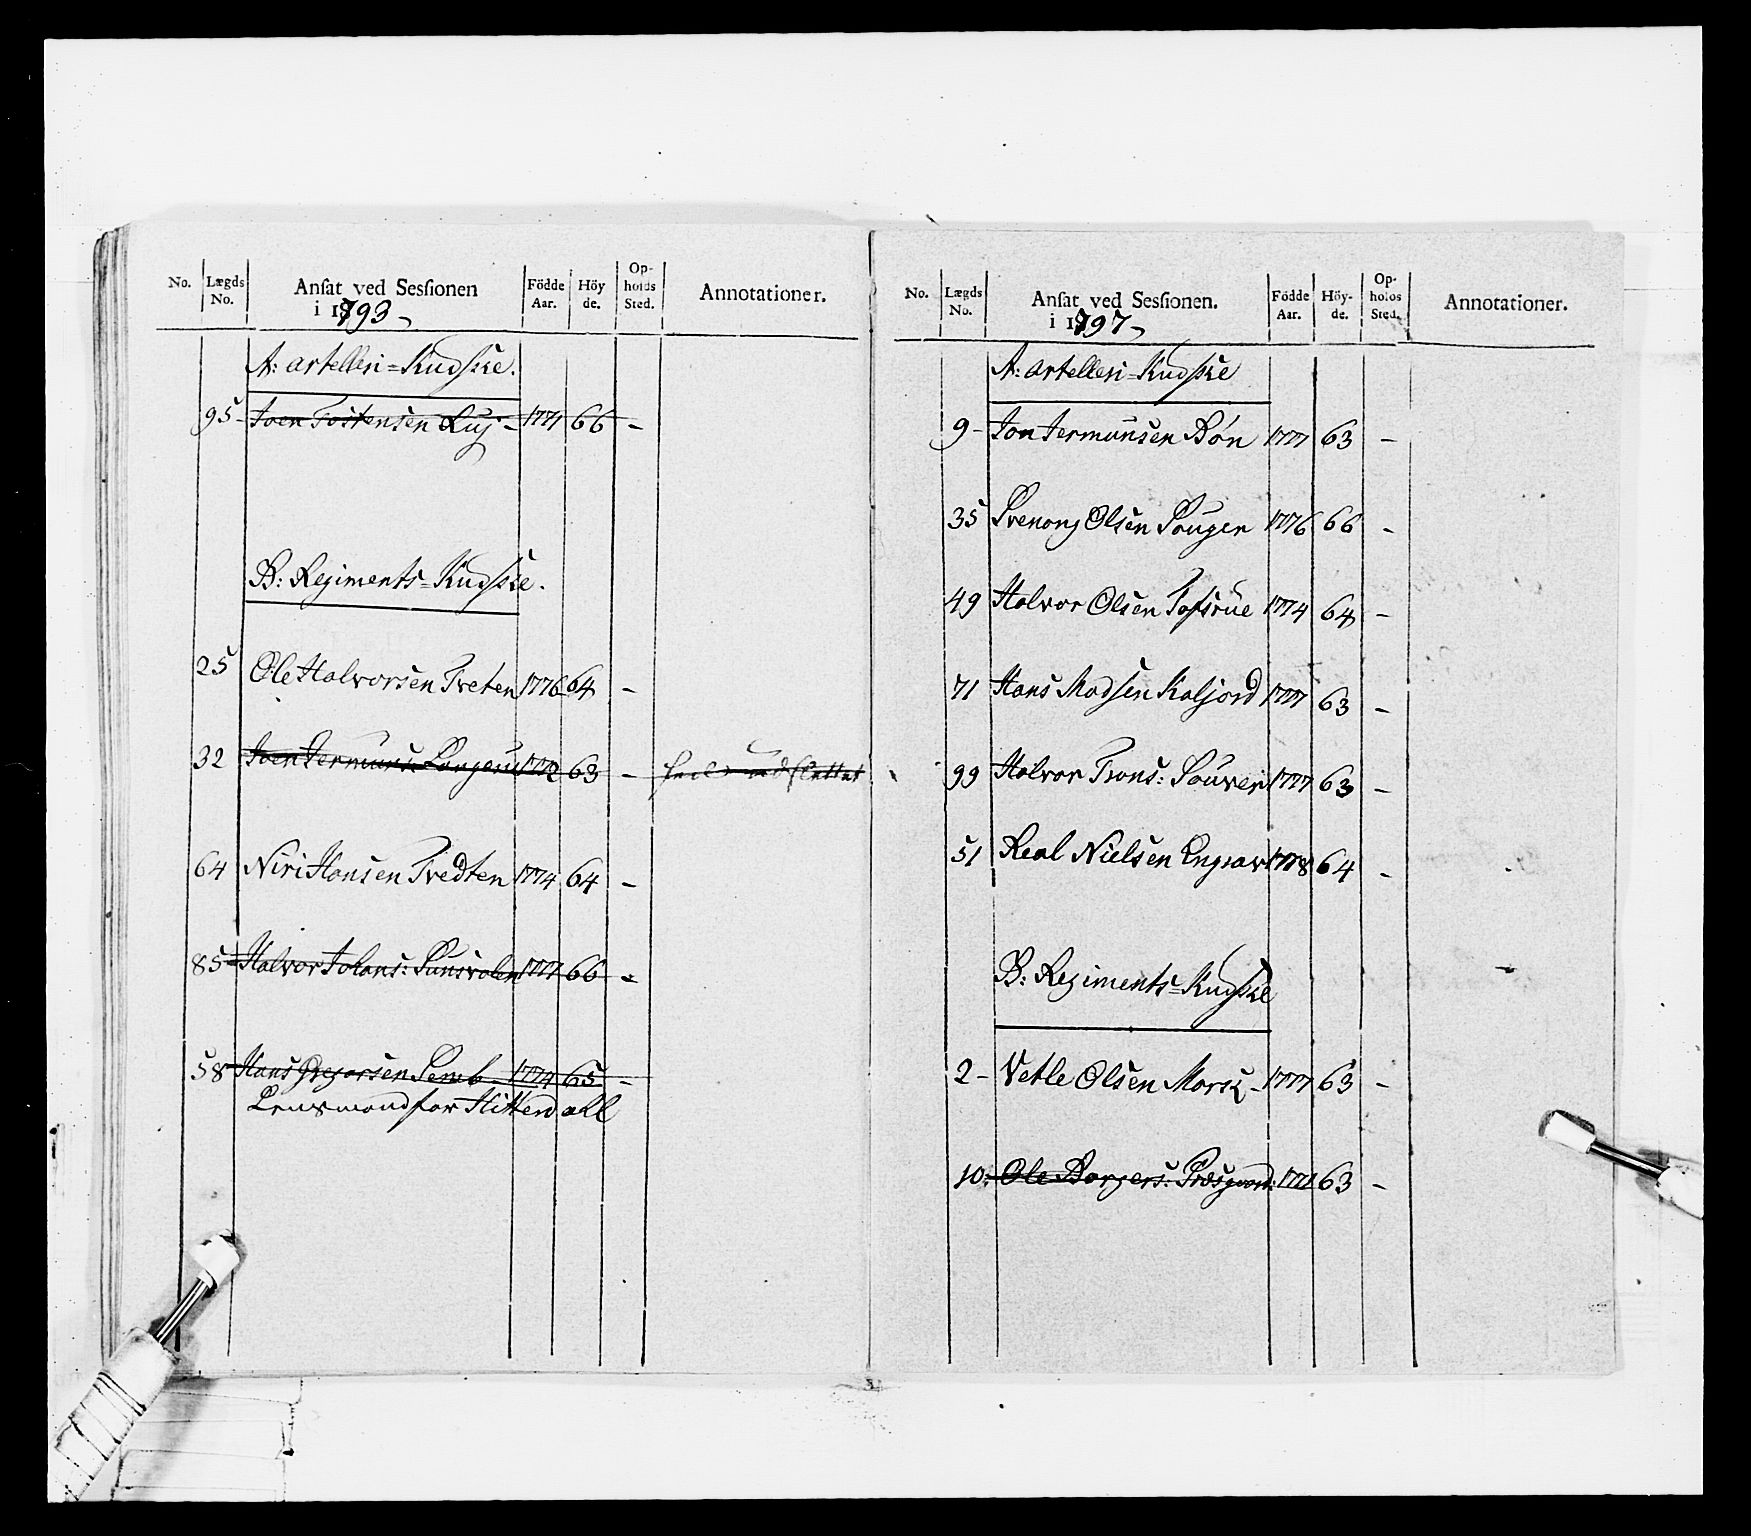 No. Lægds No. Anſat ved Sesſionen i 1793 Födde Aar. Höy de. Op-holds Sted. Annotationer.
A: artelleri=Kudſke.
95 - Joen Tostensen Luj - 1771 66 -
B: Regiments=Kudſke.
25 Ole Halvorsen Treten 1776 64 -
32 Joen Jermuns: 1772 63 -
64 Niri Hansen Tredten 1774 64 -
85 Halvor Johans: 1777 66 -
58 Hans Gregorsen Semb 1774 65 -
Lensmand for Hitterdall
No. Lægds No. Anſat ved Sesſionen. i 1797 Födde Aar. Höy-de. Op-holds Sted. Annotationer.
A: artelleri=Kudſke
9 - Jon Jermunsen Bön 1777 63 -
35 Svenong Olsen 1776 66 -
49 Halvor Olsen Tofsrüe 1774 64 -
71 Hans Madsen Kaljord 1777 63 -
99 Halvor Trons: Souveri 1777 63 -
51 Real Nielsen Engrav 1778 64 -
B: Regiments=Kudſke
2 - Vetle Olsen Morsk - 1777 63 -
10: Ole Borgers: Præsgaard: 1771 63 -